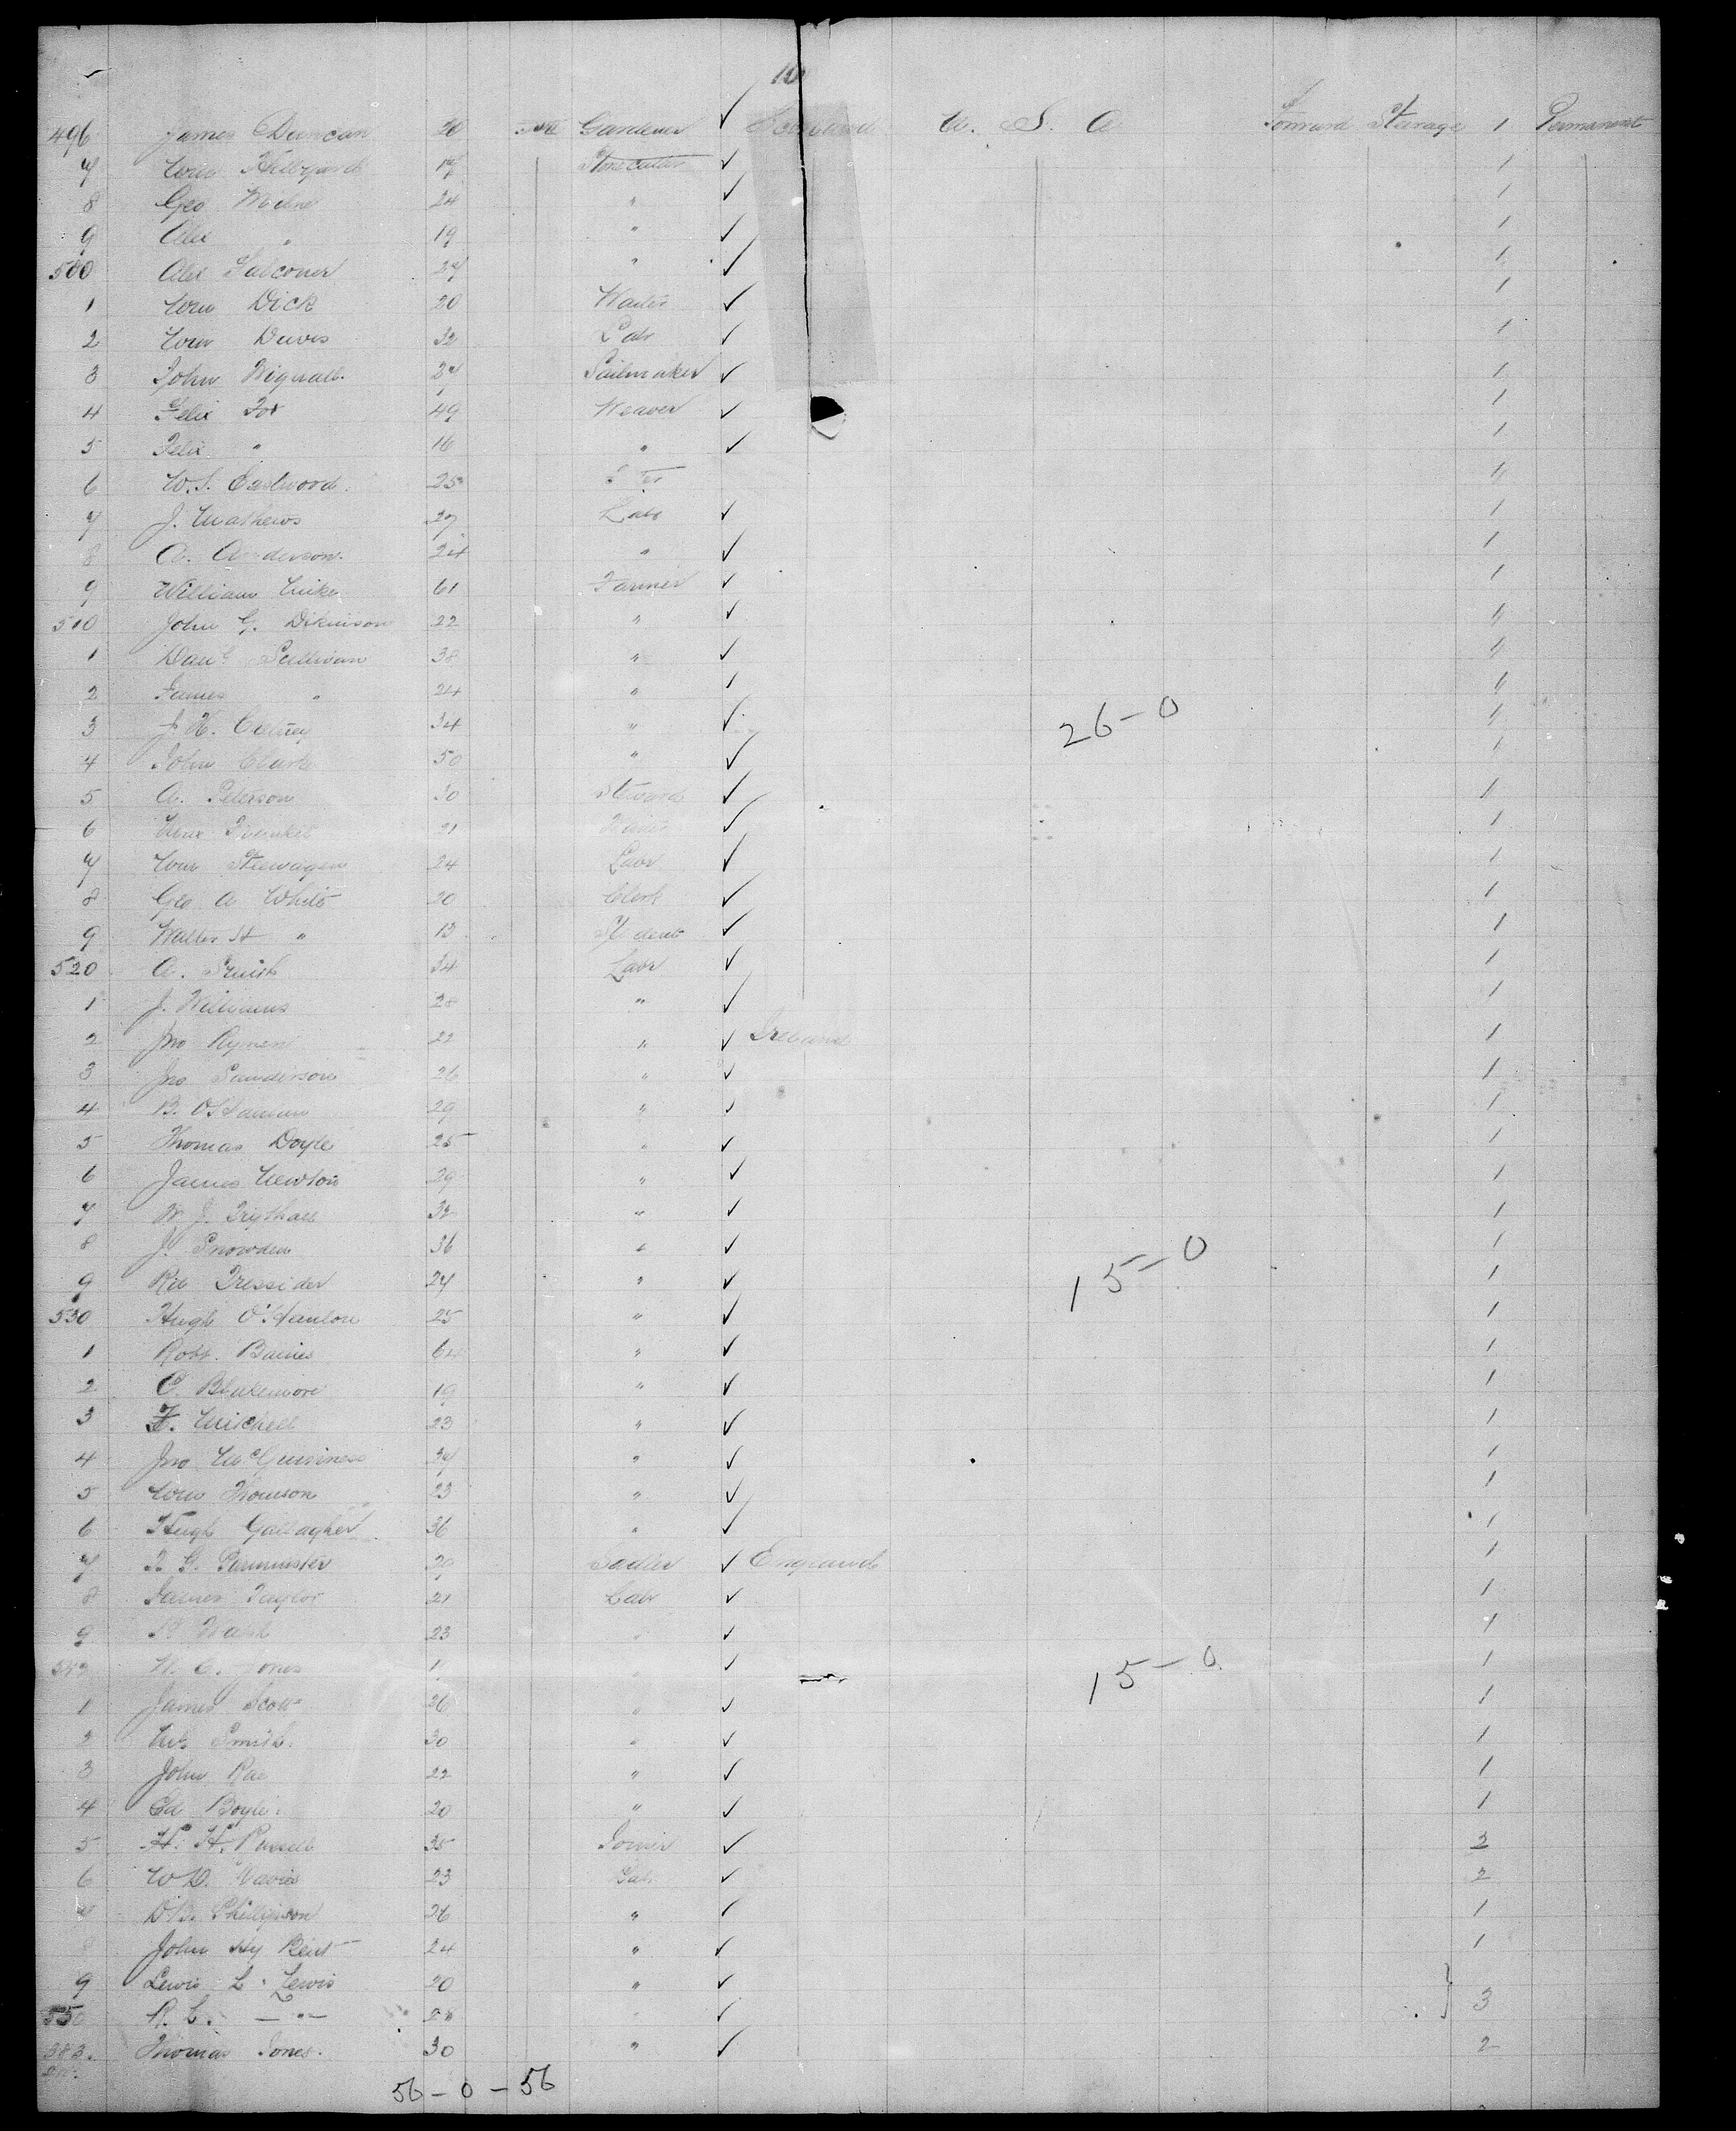 10
496 James Duncan 20 Gardener Scotland U. S. A Forward Steerage 1 Permanent
7 Wm 17 Stonecutter 1
8 Geo Milne 24 " 1
9 Alex " 19 " 1
500 Alex Falconer 27 " 1
1 Wm Dick 20 Waiter 1
2 Wm Davis 32 Labr 1
3 John Wignall. 27 Sailmaker 1
4 Felix Fox 49 Weaver 1
5 Felix " 16 " 1
6 W. S. Eastwood. 25 1
7 J. Mathews 27 Labr 1
8 A. Anderson. 24 " 1
9 William 61 Farmer 1
510 John G. Dikinson 22 " 1
1 Danl Sullivan 38 " 1
2 James " 24 " 1
3 J. H. 34 " 1
26-0
4 John Clark 50 " 1
5 A. Peterson 30 Steward 1
6 Max Frankel 21 1
7 Wm Steewagen 24 Labr 1
8 Geo A White 20 Clerk 1
9 Walter H " 13 Student 1
520 A. Smith 34 Labr 1
1 J. Williams 28 " 1
2 Jno Rymer 22 " Ireland 1
3 Jno Sanderson 26 " 1
4 B. 29 " 1
5 Thomas Doyle 25 " 1
6 James Newton 29 " 1
7 W. J. Trythall 32 " 1
8 J. Snowden 36 " 1
15-0
9 Tressider 27 " 1
530 Hugh O'Hanlon 25 " 1
1 Robt. Baines 64 " 1
2 C. Blakemore 19 " 1
3 F. Mitchell 23 " 1
4 Jno McGuinness 37 " 1
5 Wm Thomson 23 " 1
6 Hugh Gallagher 36 " 1
7 Parminster 29 Sadler England 1
8 James Taylor 21 Labr 1
9 23 " 1
W. C. Jones " 1
15-0
1 James Scott 26 " 1
2 Smith. 30 " 1
3 John Rae 22 " 1
4 Ed Boyle. 20 " 1
5 H. H. Russell 35 Joiner 2
6 W D. Davies 23 Lab. 2
7 D. B. Phillipson 26 " 1
8 John Hy Bent 24 " 1
9 Lewis L. Lewis 20 "
550 R. L. — " — " 3
383. Thomas Jones. 30 " 2
56-0-56